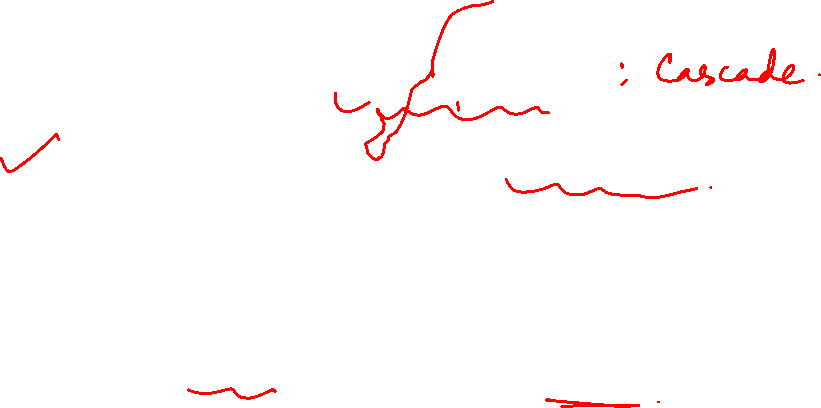 : Cascade.